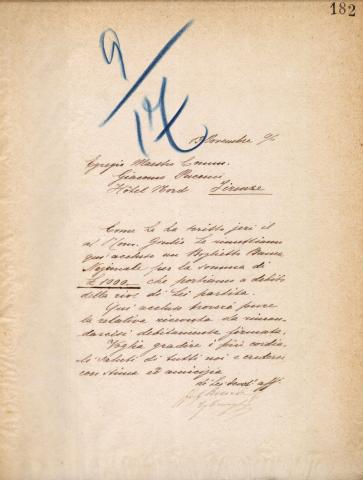 182
9/17
Novembre 9/
Egregio Maestro Comm.
Giacomo Puccini
Hôtel Nord Firenze
Come Le ha scritto jeri il
Giulio Le rimettiamo
qui accluso un Biglietto Banca
Nazionale per la somma di
£ 1000 che portiamo a debito
della di Lei partita.
Qui accluso troverà pure
la relativa ricevuta da riman-
darcisi debitamente firmata.
Voglia gradire i più cordia-
li saluti di tutti noi e crederci
con stima ed amicizia
di Lei aff.